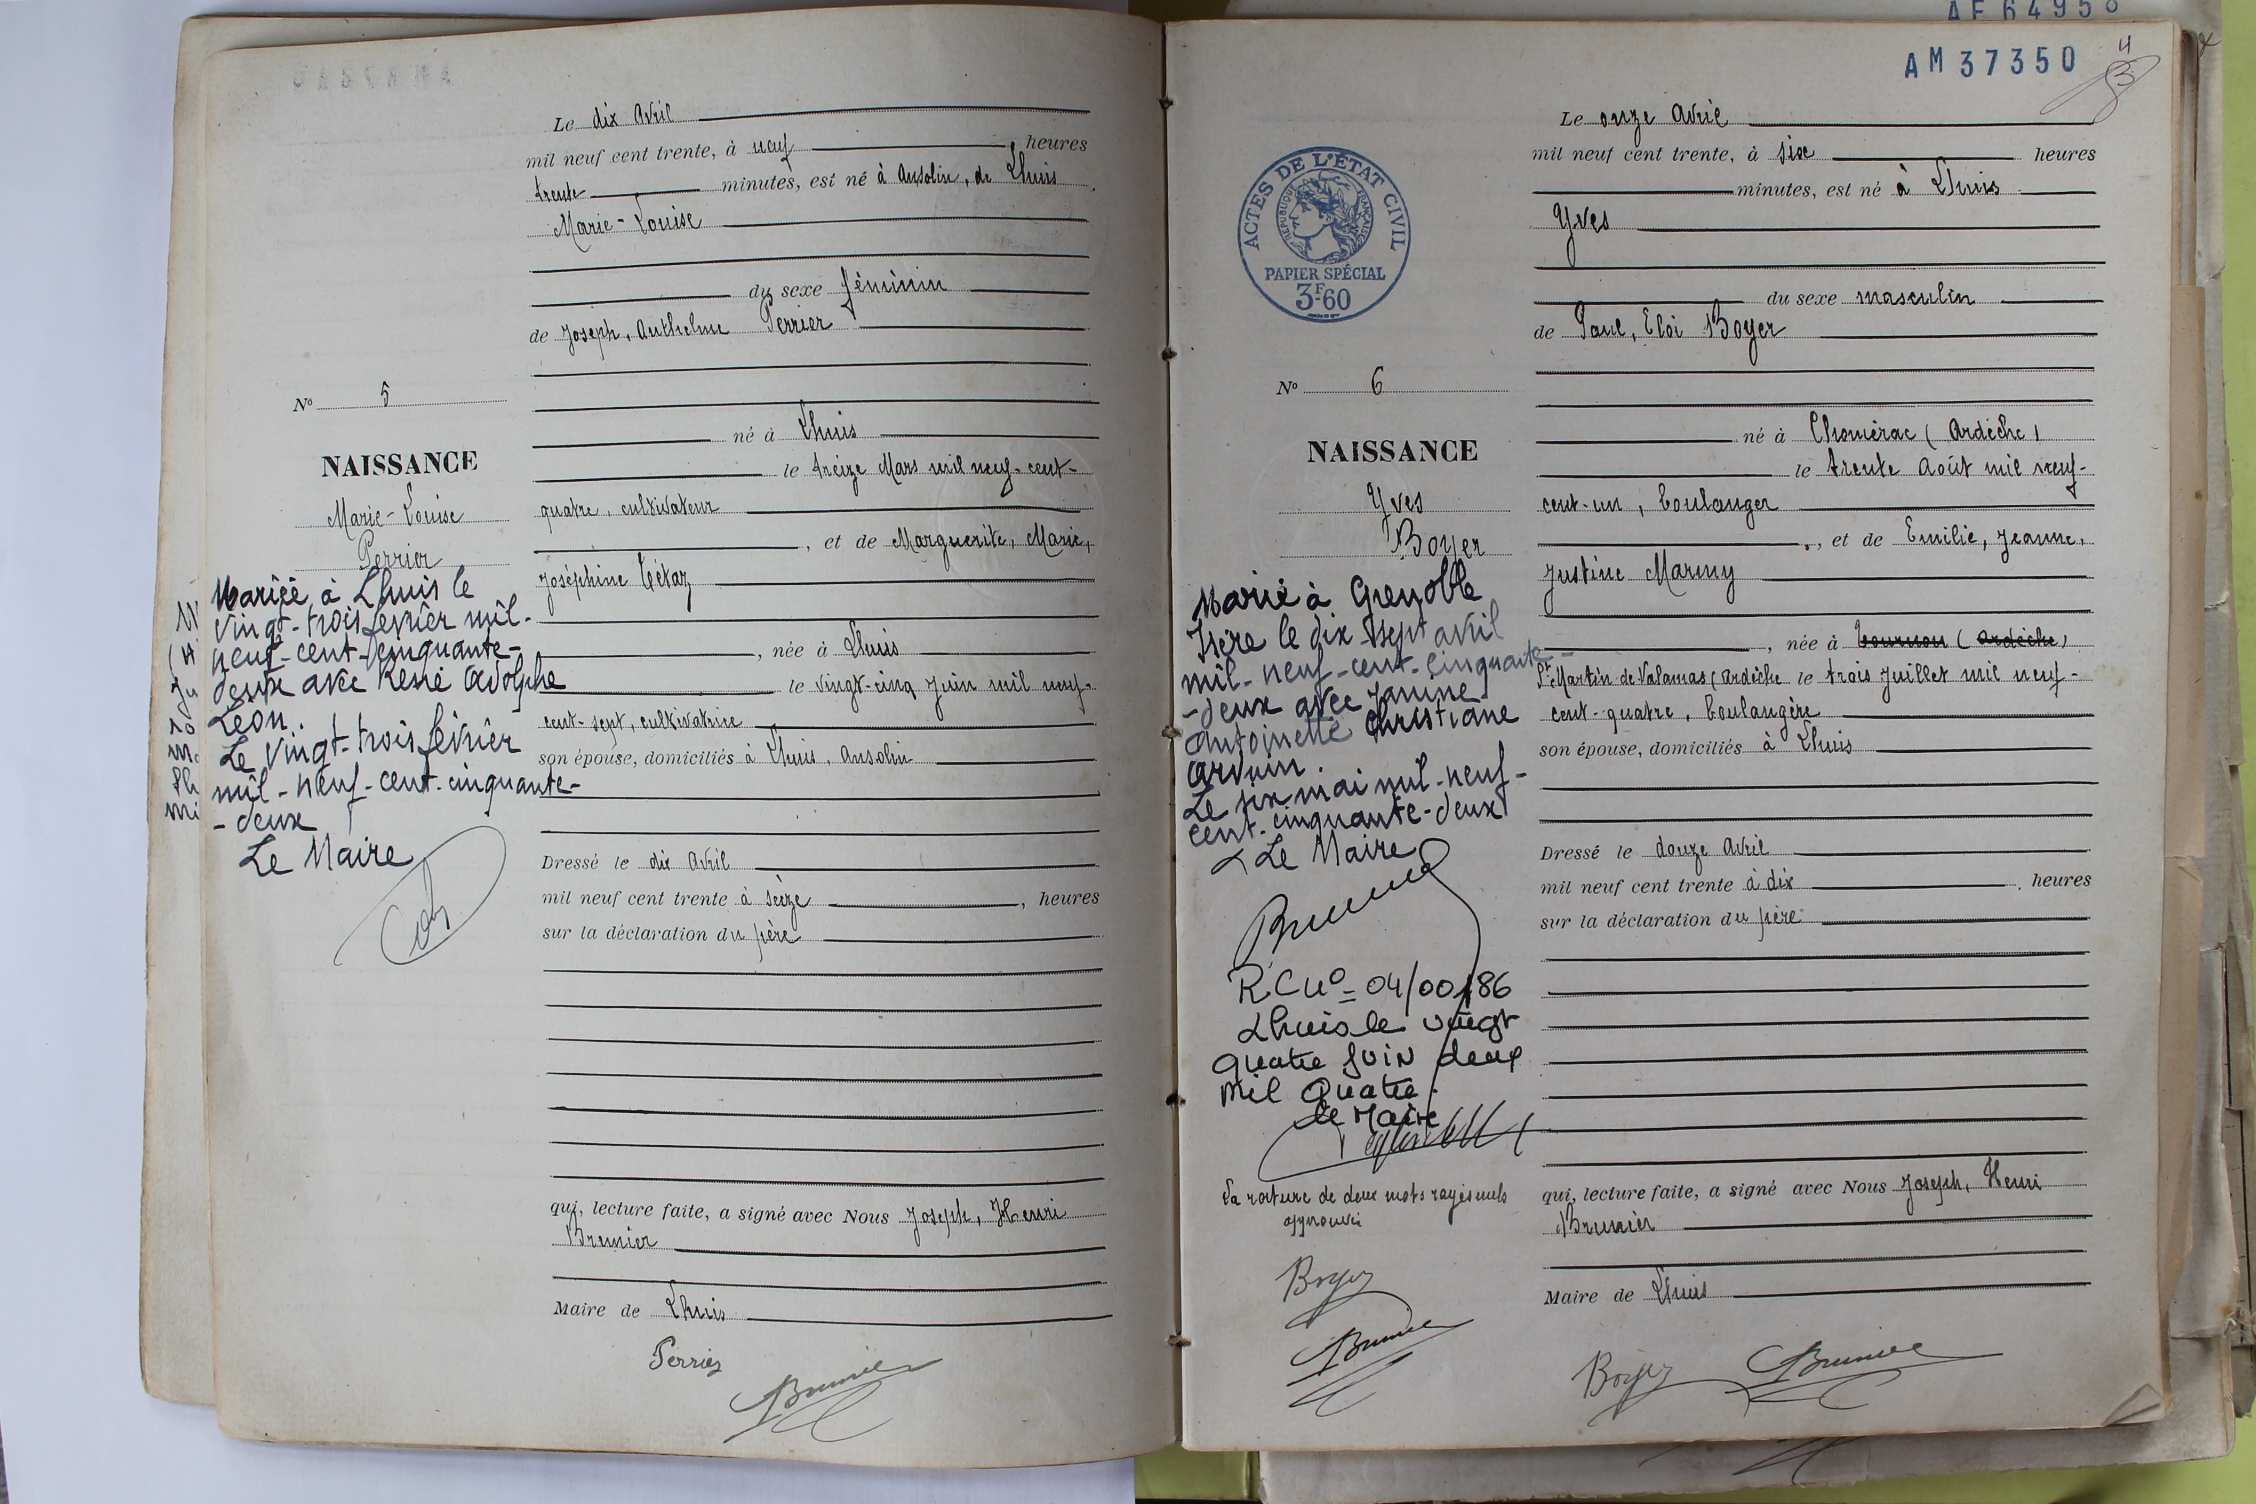 Le dix Avril
mil neuf cent trente, à neuf heures
trente minutes, est né à Ansolin, de Lhuis
Marie-Louise
du sexe féminin
de Joseph, Anthelme Perrier
né à Lhuis
le treize Mars mil neuf-cent-
quatre, cultivateur
, et de Marguerite, Marie,
Joséphine Tétaz
, née à Lhuis
le vingt-cinq Juin mil neuf-
cent-sept, cultivatrice
son épouse, domiciliés à Lhuis, Ansolin
Dressé le dix Avril
mil neuf cent trente à seize , heures
sur la déclaration du père
qui, lecture faite, a signé avec Nous Joseph, Henri
Brunier
Maire de Lhuis
Perrier
Brunier
No 5
NAISSANCE
Marie-Louise
Perrier
Mariée à Lhuis le
vingt-trois février mil-
neuf-cent-cinquante-
deux avec René Adolphe
Léon.
Le vingt-trois février
mil-neuf-cent-cinquante-
-deux
Le Maire
AF 64958
AM 37350
4
Le onze Avril
mil neuf cent trente, à six heures
minutes, est né à Lhuis
Yves
du sexe masculin
de Paul, Eloi Boyer
né à Chomérac (Ardèche)
le trente Août mil neuf-
cent-un, boulanger
, et de Emilie, Jeanne,
Justine Marmy
, née à Tournon (Ardèche)
St Martin de Valamas (Ardèche le trois Juillet mil neuf-
cent-quatre, boulangère
son épouse, domiciliés à Lhuis
Dressé le douze Avril
mil neuf cent trente à dix , heures
sur la déclaration du père
qui, lecture faite, a signé avec Nous Joseph, Henri
Brunier
Maire de Lhuis
Boyer
Brunier
ACTES DE L'ÉTAT CIVIL
RÉPUBLIQUE FRANÇAISE
PAPIER SPÉCIAL
3F.60
No 6
NAISSANCE
Yves
Boyer
Marié à Grenoble
Isère le dix-sept avril
mil-neuf-cent-cinquante-
-deux avec Janine
Antoinette Christiane
Arduin.
Le six mai mil-neuf-
cent-cinquante-deux
Le Maire
Brunier
RC no = 04/00186
Lhuis le vingt
quatre Juin deux
mil quatre.
Le Maire
La rature de deux mots rayés nuls
approuvée
Boyer
Brunier